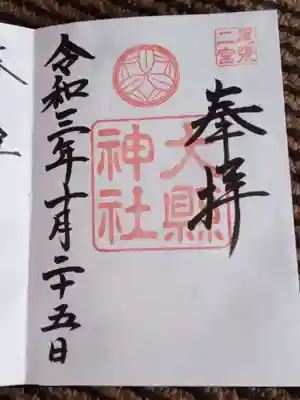 尾張
二宮
奉拝
大縣
神社
令和三年十月二十五日